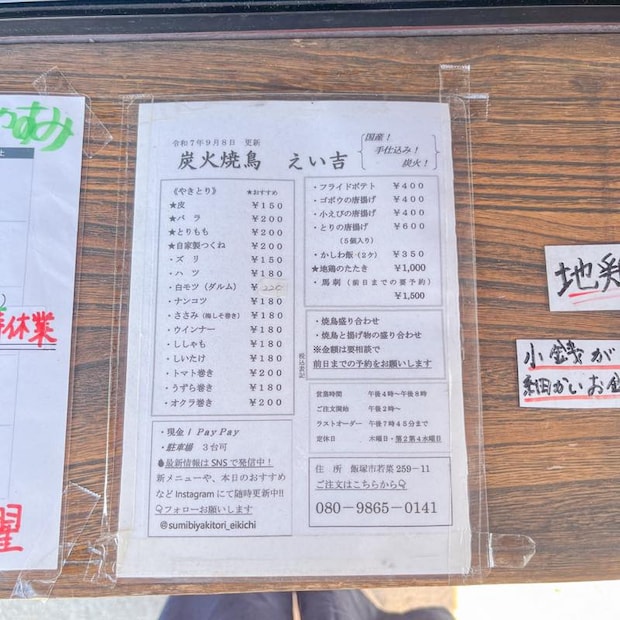 令和7年9月8日 更新
炭火焼鳥 えい吉
国産!
手仕込み!
炭火!
《やきとり》 ★おすすめ
★皮 ¥150
★バラ ¥200
★とりもも ¥200
★自家製つくね ¥200
・ズリ ¥150
・ハツ ¥180
・白モツ(ダルム) ¥220
・ナンコツ ¥180
・ささみ(梅しそ巻き) ¥180
・ウインナー ¥180
・ししゃも ¥180
・しいたけ ¥180
・トマト巻き ¥200
・うずら巻き ¥180
・オクラ巻き ¥200
・現金/PayPay
・駐車場 3台可
最新情報はSNSで発信中!
新メニューや、本日のおすすめ
などInstagramにて随時更新中!!
フォローお願いします
@sumibiyakitori_eikichi
・フライドポテト ¥400
・ゴボウの唐揚げ ¥400
・小えびの唐揚げ ¥400
・とりの唐揚げ ¥600
(5個入り)
・かしわ飯(2ケ) ¥350
★地鶏のたたき ¥1,000
・馬刺(前日までの要予約)
¥1,500
・焼鳥盛り合わせ
・焼鳥と揚げ物の盛り合わせ
※金額は要相談で
前日までの予約をお願いします
税込表記
営業時間 午後4時~午後8時
ご注文開始 午後2時~
ラストオーダー 午後7時45分まで
定休日 木曜日・第2第4水曜日
住 所 飯塚市若菜259-11
ご注文はこちらから
080-9865-0141
すみ
休業
曜
地鶏
小銭が
細かいお